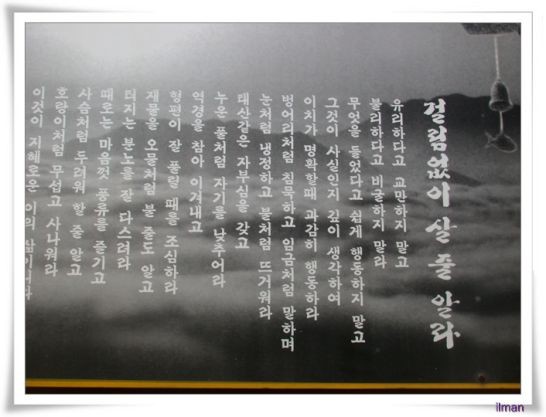 걸림없이 살 줄 알라
유리하다고 교만하지 말고
불리하다고 비굴하지 말라
무엇을 들었다고 쉽게 행동하지 말고
그것이 사실인지 깊이 생각하여
이치가 명확할때 과감히 행동하라
벙어리처럼 침묵하고 임금처럼 말하며
눈처럼 냉정하고 불처럼 뜨거워라
태산같은 자부심을 갖고
누운 풀처럼 자기를 낮추어라
역경을 참아 이겨내고
형편이 잘 풀릴 때를 조심하라
재물을 오물처럼 볼 줄도 알고
터지는 분노를 잘 다스려라
때로는 마음껏 풍류를 즐기고
사슴처럼 두려워 할 줄 알고
호랑이처럼 무섭고 사나워라
이것이 지혜로운 이의 삶이니라
ilman